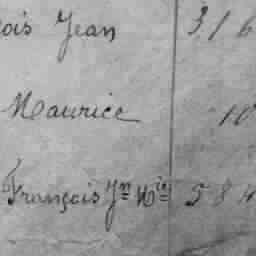 ois Jean 316
Maurice 10
François Jn Mie 584